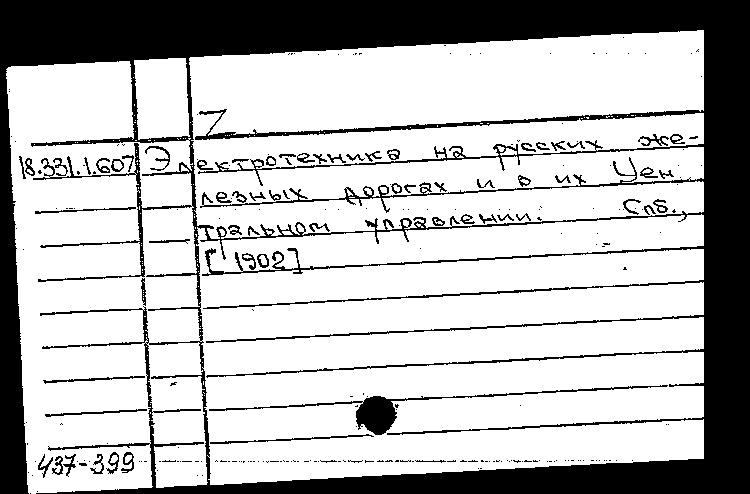 Z.
18.331.1.607 Электротехника на русских же-
лезных дорогах и в их Цен
тральном управлении. Спб.,
[1902].
437-399